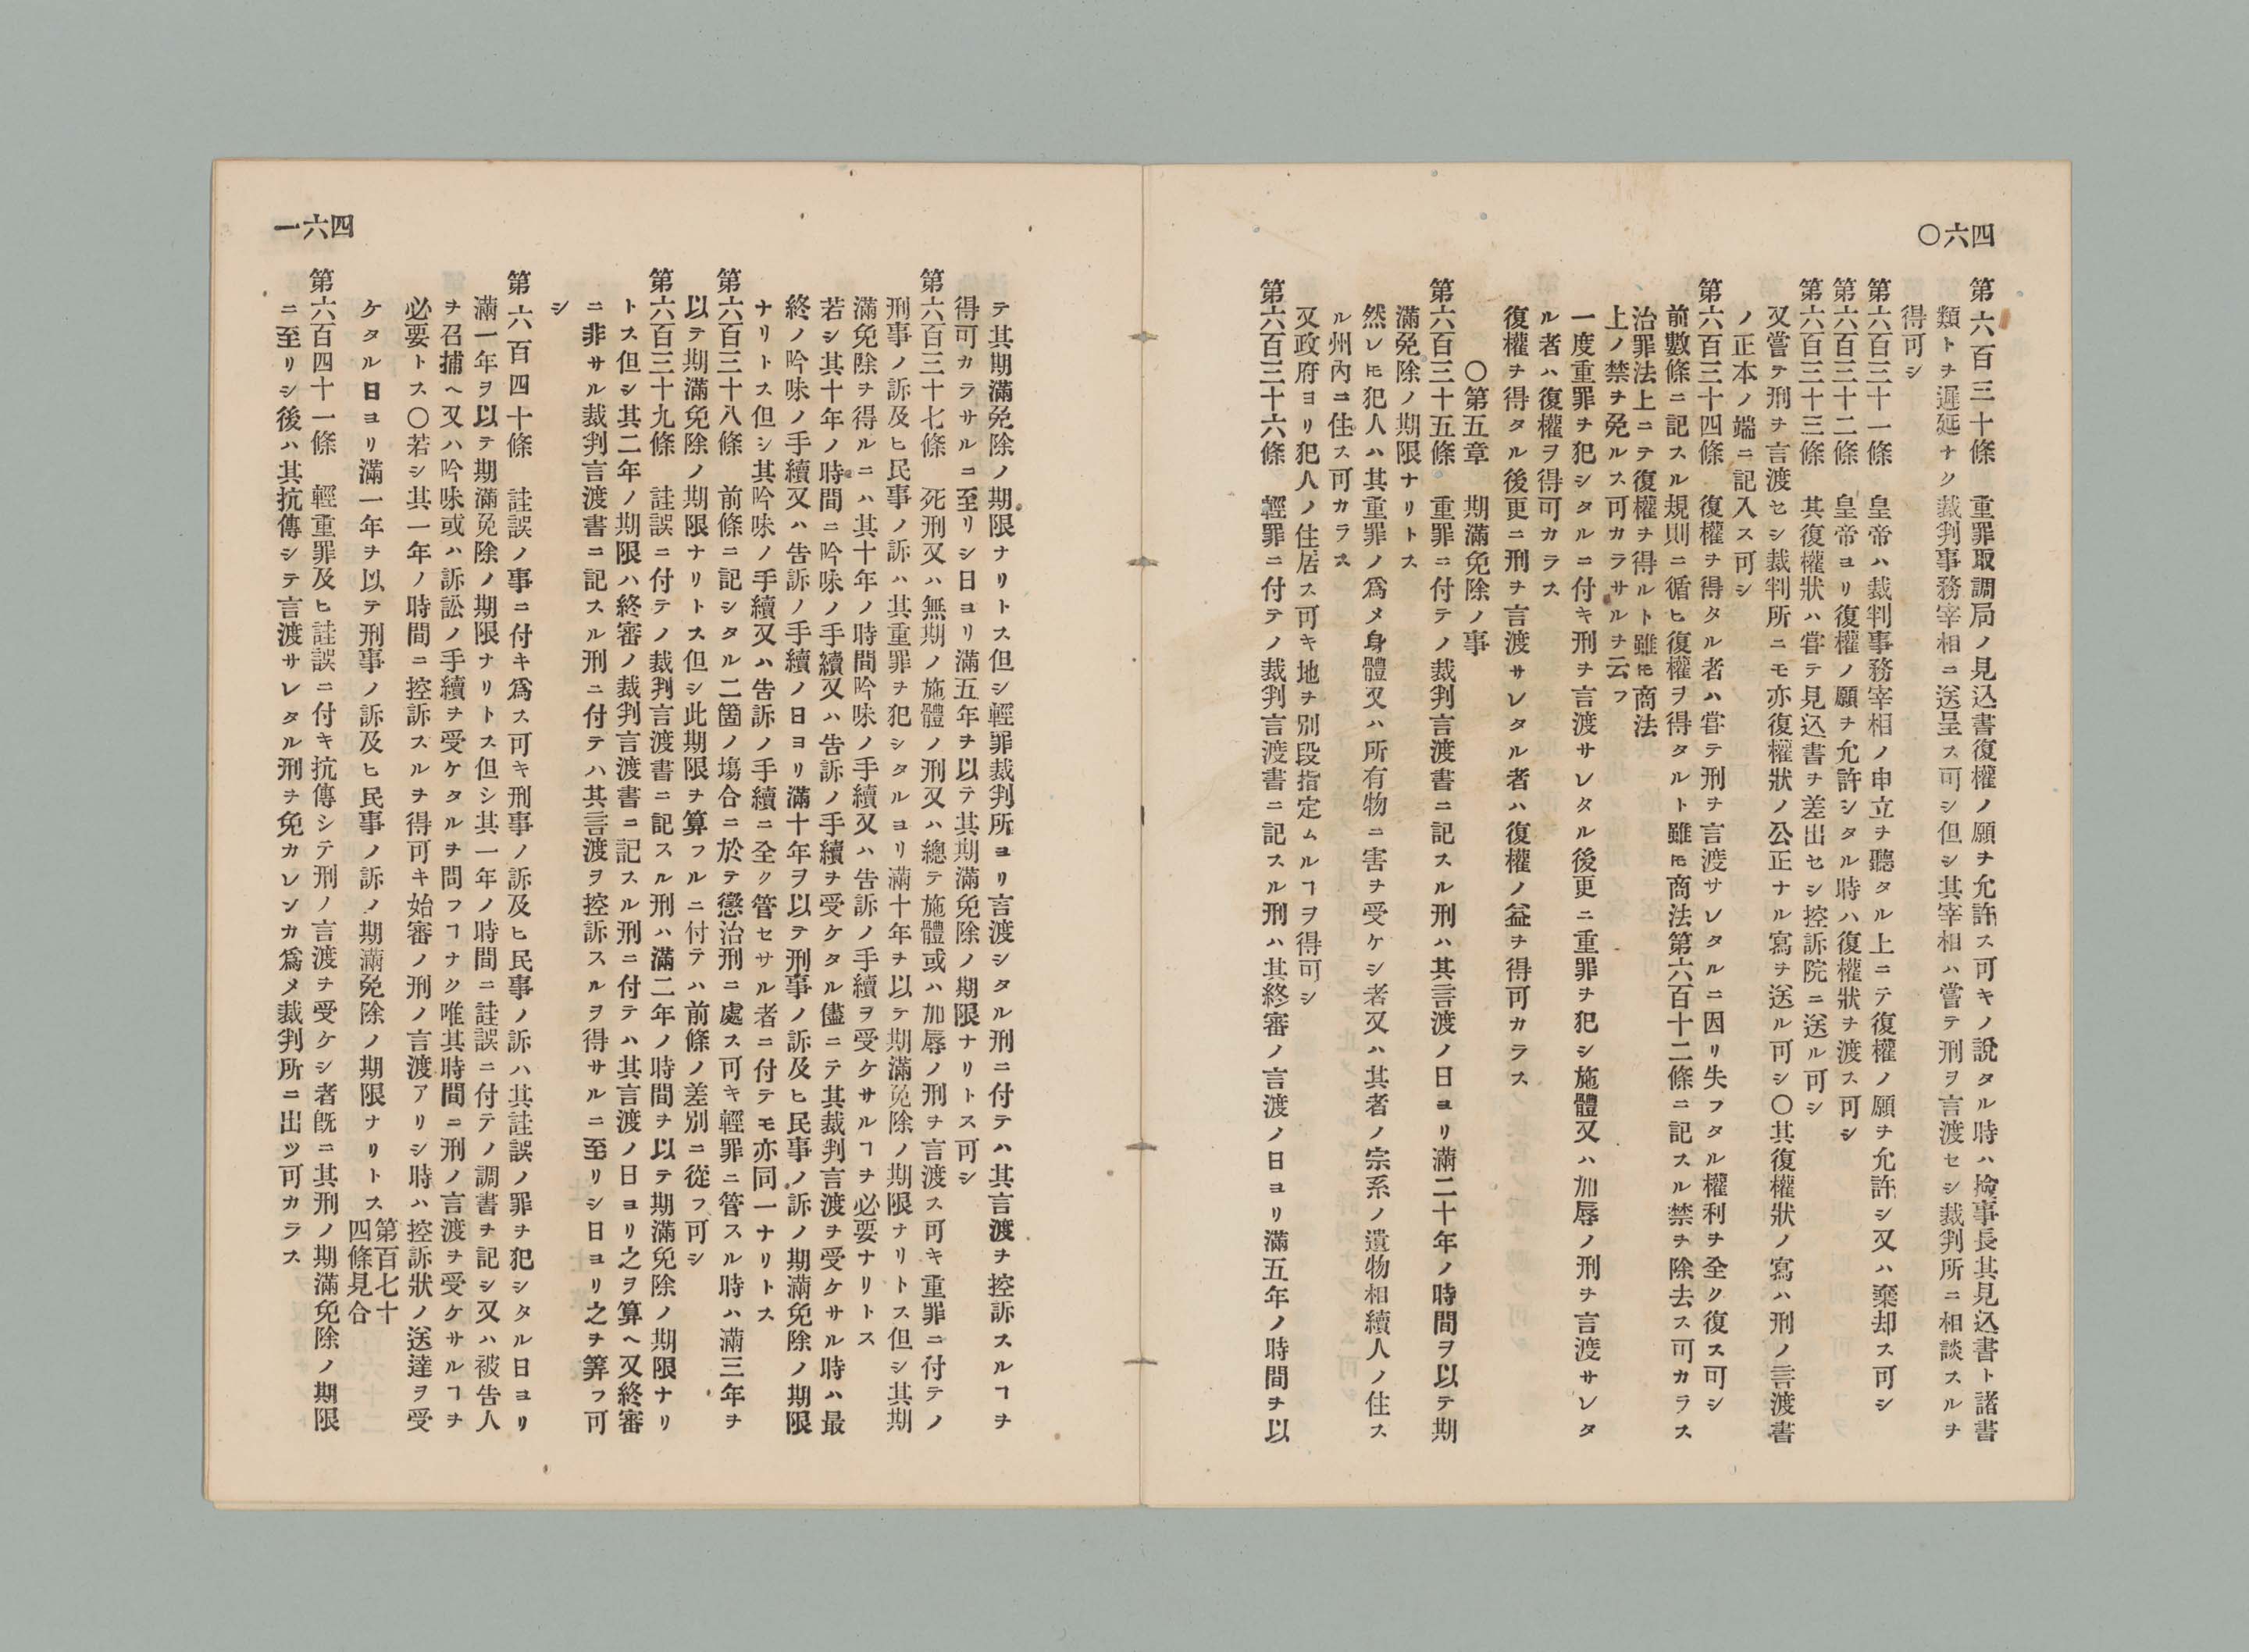 四六〇
第六百三十條　重罪取調局ノ見込書復權ノ願ヲ允許ス可キノ說タル時ハ撿事長其見込書ト諸書
類トヲ遲延ナク裁判事務宰相ニ送呈ス可シ但シ其宰相ハ嘗テ刑ヲ言渡セシ裁判所ニ相談スルヲ
得可シ
第六百三十一條　皇帝ハ裁判事務宰相ノ申立ヲ聽タル上ニテ復權ノ願ヲ允許シ又ハ棄却ス可シ
第六百三十二條　皇帝ヨリ復權ノ願ヲ允許シタル時ハ復權狀ヲ渡ス可シ
第六百三十三條　其復權狀ハ嘗テ見込書ヲ差出セシ控訴院ニ送ル可シ
又嘗テ刑ヲ言渡セシ裁判所ニモ亦復權狀ノ公正ナル寫ヲ送ル可シ〇其復權狀ノ寫ハ刑ノ言渡書
ノ正本ノ端ニ記入ス可シ
第六百三十四條　復權ヲ得タル者ハ嘗テ刑ヲ言渡サレタルニ因リ失フタル權利ヲ全ク復ス可シ
前數條ニ記スル規則ニ循ヒ復權ヲ得タルト雖𪜈商法第六百十二條ニ記スル禁ヲ除去ス可カラス
治罪法上ニテ復權ヲ得ルト雖𪜈商法
上ノ禁ヲ免ルス可カラサルヲ云フ
一度重罪ヲ犯シタルニ付キ刑ヲ言渡サレタル後更ニ重罪ヲ犯シ施體又ハ加辱ノ刑ヲ言渡サレタ
ル者ハ復權ヲ得可カラス
復權ヲ得タル後更ニ刑ヲ言渡サレタル者ハ復權ノ益ヲ得可カラス
〇第五章　期滿免除ノ事
第六百三十五條　重罪ニ付テノ裁判言渡書ニ記スル刑ハ其言渡ノ日ヨリ滿二十年ノ時間ヲ以テ期
滿免除ノ期限ナリトス
然レ𪜈犯人ハ其重罪ノ爲メ身體又ハ所有物ニ害ヲ受ケシ者又ハ其者ノ宗系ノ遺物相續人ノ住ス
ル州內ニ住ス可カラス
又政府ヨリ犯人ノ住居ス可キ地ヲ別段指定ムルヿヲ得可シ
第六百三十六條　輕罪ニ付テノ裁判言渡書ニ記スル刑ハ其終審ノ言渡ノ日ヨリ滿五年ノ時間ヲ以
四六一
テ其期滿免除ノ期限ナリトス但シ輕罪裁判所ヨリ言渡シタル刑ニ付テハ其言渡ヲ控訴スルヿヲ
得可カラサルニ至リシ日ヨリ滿五年ヲ以テ其期滿免除ノ期限ナリトス可シ
第六百三十七條　死刑又ハ無期ノ施體ノ刑又ハ總テ施體或ハ加辱ノ刑ヲ言渡ス可キ重罪ニ付テノ
刑事ノ訴及ヒ民事ノ訴ハ其重罪ヲ犯シタルヨリ滿十年ヲ以テ期滿免除ノ期限ナリトス但シ其期
滿免除ヲ得ルニハ其十年ノ時間吟味ノ手續又ハ告訴ノ手續ヲ受ケサルヿヲ必要ナリトス
若シ其十年ノ時間ニ吟味ノ手續又ハ告訴ノ手續ヲ受ケタル儘ニテ其裁判言渡ヲ受ケサル時ハ最
終ノ吟味ノ手續又ハ告訴ノ手續ノ日ヨリ滿十年ヲ以テ刑事ノ訴及ヒ民事ノ訴ノ期滿免除ノ期限
ナリトス但シ其吟味ノ手續又ハ告訴ノ手續ニ全ク管セサル者ニ付テモ亦同一ナリトス
第六百三十八條　前條ニ記シタル二箇ノ塲合ニ於テ懲治刑ニ處ス可キ輕罪ニ管スル時ハ滿三年ヲ
以テ期滿免除ノ期限ナリトス但シ此期限ヲ算フルニ付テハ前條ノ差別ニ從フ可シ
第六百三十九條　詿誤ニ付テノ裁判言渡書ニ記スル刑ハ滿二年ノ時間ヲ以テ期滿免除ノ期限ナリ
トス但シ其二年ノ期限ハ終審ノ裁判言渡書ニ記スル刑ニ付テハ其言渡ノ日ヨリ之ヲ算ヘ又終審
ニ非サル裁判言渡書ニ記スル刑ニ付テハ其言渡ヲ控訴スルヲ得サルニ至リシ日ヨリ之ヲ筭フ可
シ
第六百四十條　詿誤ノ事ニ付キ爲ス可キ刑事ノ訴及ヒ民事ノ訴ハ其詿誤ノ罪ヲ犯シタル日ヨリ
滿一年ヲ以テ期滿免除ノ期限ナリトス但シ其一年ノ時間ニ詿誤ニ付テノ調書ヲ記シ又ハ被告人
ヲ召捕ヘ又ハ吟味或ハ訴訟ノ手續ヲ受ケタルヲ問フヿナク唯其時間ニ刑ノ言渡ヲ受ケサルヿヲ
必要トス〇若シ其一年ノ時間ニ控訴スルヲ得可キ始審ノ刑ノ言渡アリシ時ハ控訴狀ノ送達ヲ受
ケタル日ヨリ滿一年ヲ以テ刑事ノ訴及ヒ民事ノ訴ノ期滿免除ノ期限ナリトス
第百七十
四條見合
第六百四十一條　輕重罪及ヒ詿誤ニ付キ抗傳シテ刑ノ言渡ヲ受ケシ者旣ニ其刑ノ期滿免除ノ期限
ニ至リシ後ハ其抗傳シテ言渡サレタル刑ヲ免カレンカ爲メ裁判所ニ出ツ可カラス